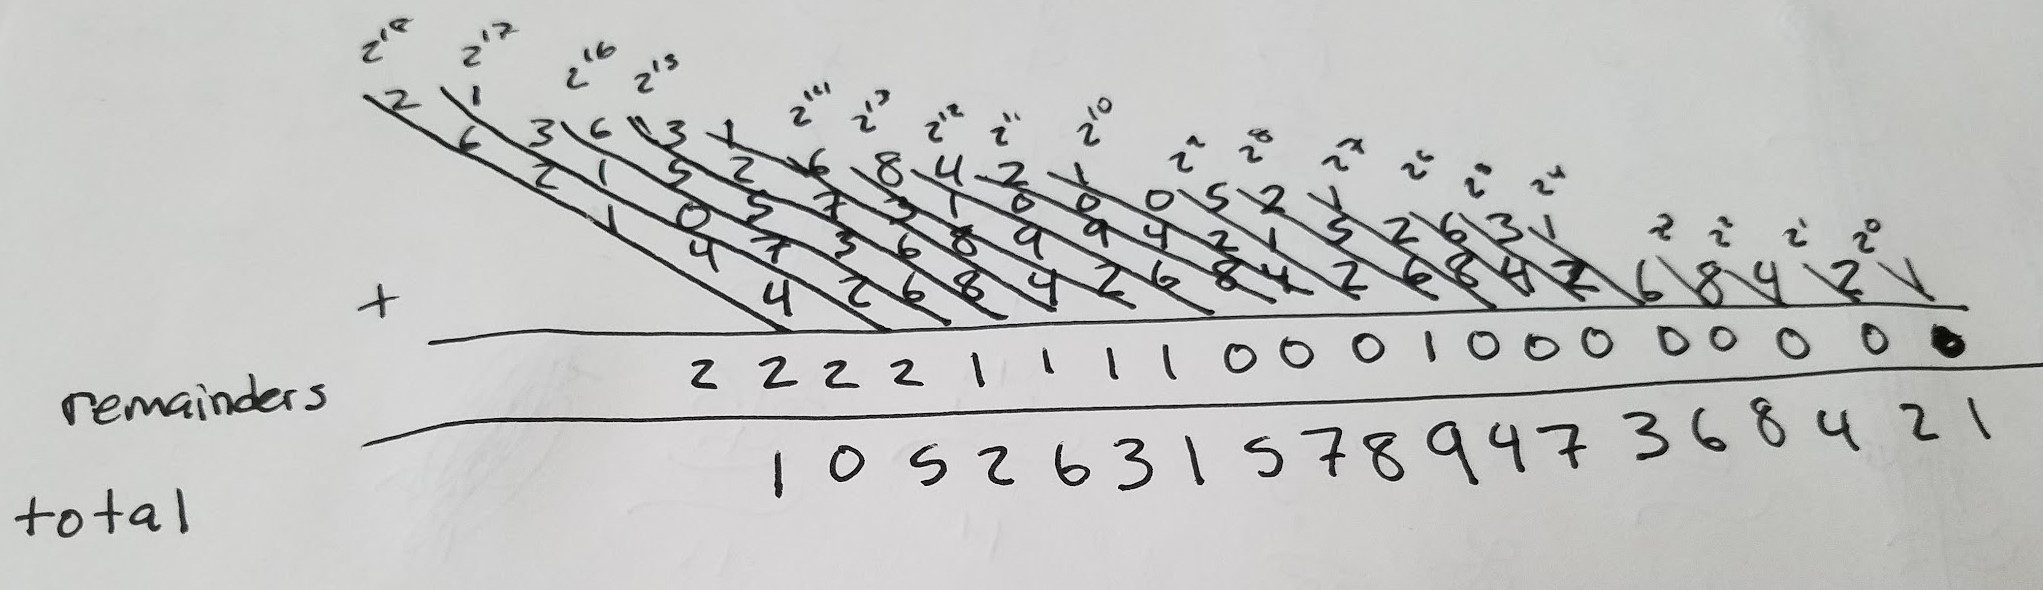 2¹⁸ 2¹⁷ 2¹⁶ 2¹⁵ 2¹⁴ 2¹³ 2¹² 2¹¹ 2¹⁰ 2⁹ 2⁸ 2⁷ 2⁶ 2⁵ 2⁴ 2³ 2² 2¹ 2⁰
2 1
6 3 6 3 1
2 1 5 2 6 8 4 2 1
1 0 5 7 3 1 0 0 0 5 2 1
4 7 3 6 8 9 9 4 2 1 5 2 6 3 1
+ 4 2 6 8 4 2 6 8 4 2 6 8 4 2 6 8 4 2 1
remainders 2 2 2 2 1 1 1 1 0 0 0 1 0 0 0 0 0 0 0
total 1 0 5 2 6 3 1 5 7 8 9 4 7 3 6 8 4 2 1